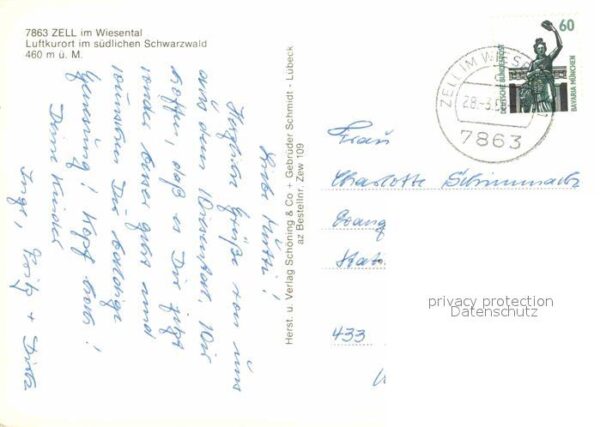 7863 ZELL im Wiesental
Luftkurort im südlichen Schwarzwald
460 m ü. M.
Liebe Mutti!
Herzliche Grüße von uns
aus dem Wiesental. Wir
hoffen, daß es Dir jetzt
wieder besser geht und
wünschen Dir baldige
Genesung! Kopf hoch!
Deine Kinder
Inge, +
Herst. u. Verlag Schöning & Co + Gebrüder Schmidt - Lübeck
az Bestellnr. Zew 109
60
DEUTSCHE BUNDESPOST
BAVARIA MÜNCHEN
ZELL IM WIES
28.-3.
7863
Frau
Charlotte
Evang
433
privacy protection
Datenschutz